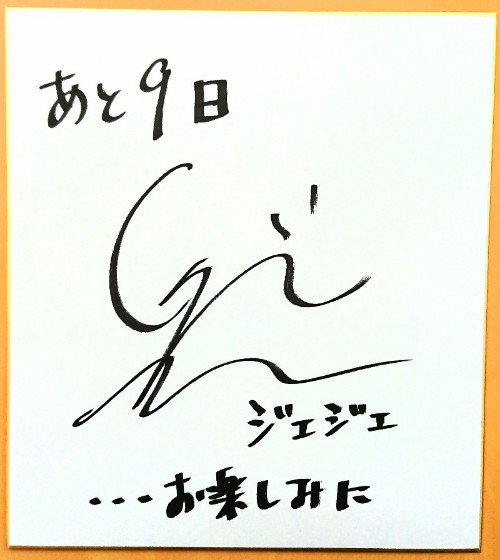 あと9日
ジェジェ
・・・お楽しみに